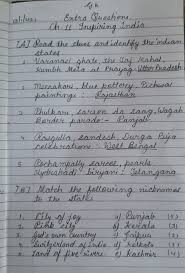 Extra Questions
Ch 11 Inspiring India
[A] Read the clues and identify the Indian
states
1. Varanasi ghats, the Taj Mahal,
Kumbh Mela at Prayag Uttar Pradesh
2. Meenakari, blue pottery, Pichwai
paintings : Rajasthan
3. Bhukan, sarson da saag, Wagah
Border parade - Punjab
4. Rasgulla, sandesh, Durga Puja
celebrations - West Bengal
5. Pochampally sarees, pearls
Hyderabad biryani : Telangana
[B] Match the following nicknames
to the states
1. City of joy a) Punjab (5)
2. Pink city b) Kerala (3)
3. God's own Country c) Jaipur (2)
4. Switzerland of India d) Kolkata (1)
5. Land of five rivers e) Kashmir (4)